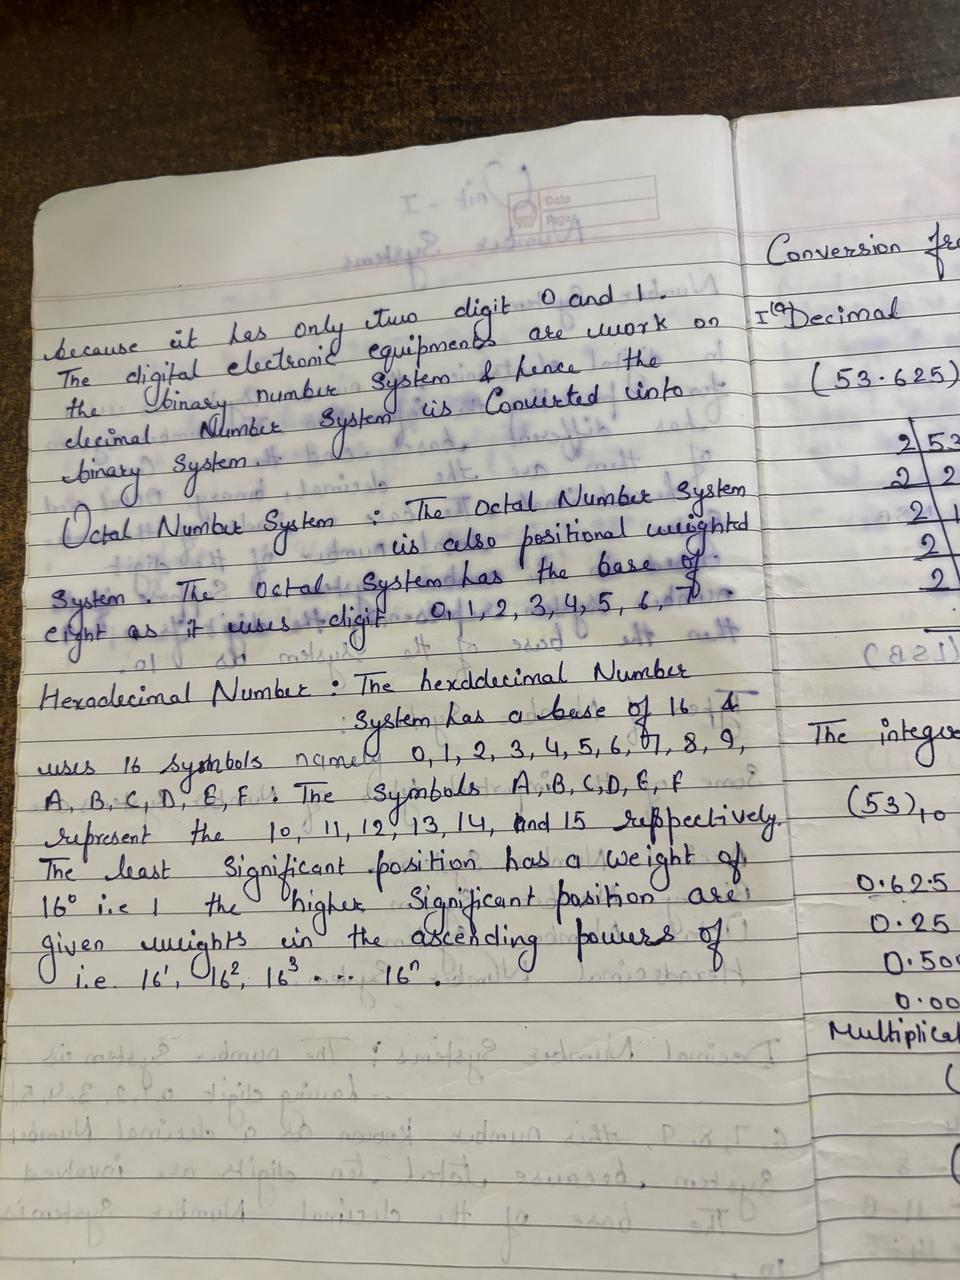 Date
Page
because it has only two digit 0 and 1.
The digital electronic equipments are work on
the binary number System & hence the
decimal Number System is Converted into
binary System.
Octal Number System : The Octal Number System
is also positional weighted
System. The Octal System has the base of
eight as it uses digit 0, 1, 2, 3, 4, 5, 6, 7.
Hexadecimal Number : The hexddecimal Number
System has a base of 16 &
uses 16 symbols namely 0, 1, 2, 3, 4, 5, 6, 7, 8, 9,
A, B, C, D, E, F. The Symbols A, B, C, D, E, F
represent the 10, 11, 12, 13, 14, and 15 reppectively.
The least Significant position has a weight of
16⁰ i.e 1 the higher Significant position are
given weights in the ascending powers of
i.e. 16¹, 16², 16³ .... 16ⁿ.
Conversion
I(a) Decimal
(53.625)
2 53
2 2
2 1
2
2
The
(53)₁₀
0.625
0.25
0.0